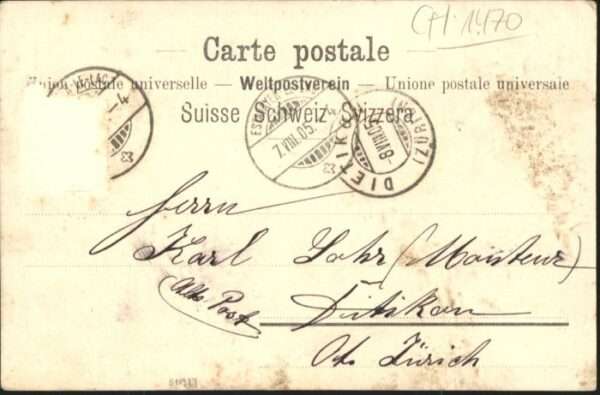 CH. 1470
Carte postale
Union postale universelle – Weltpostverein – Unione postale universale
Suisse Schweiz Svizzera
7.VIII.05.
DIETIKON (ZÜRICH)
8.VIII.05
Herrn
Karl Lohr (Monteur)
(Alte Post) Ditikon
Kt. Zürich